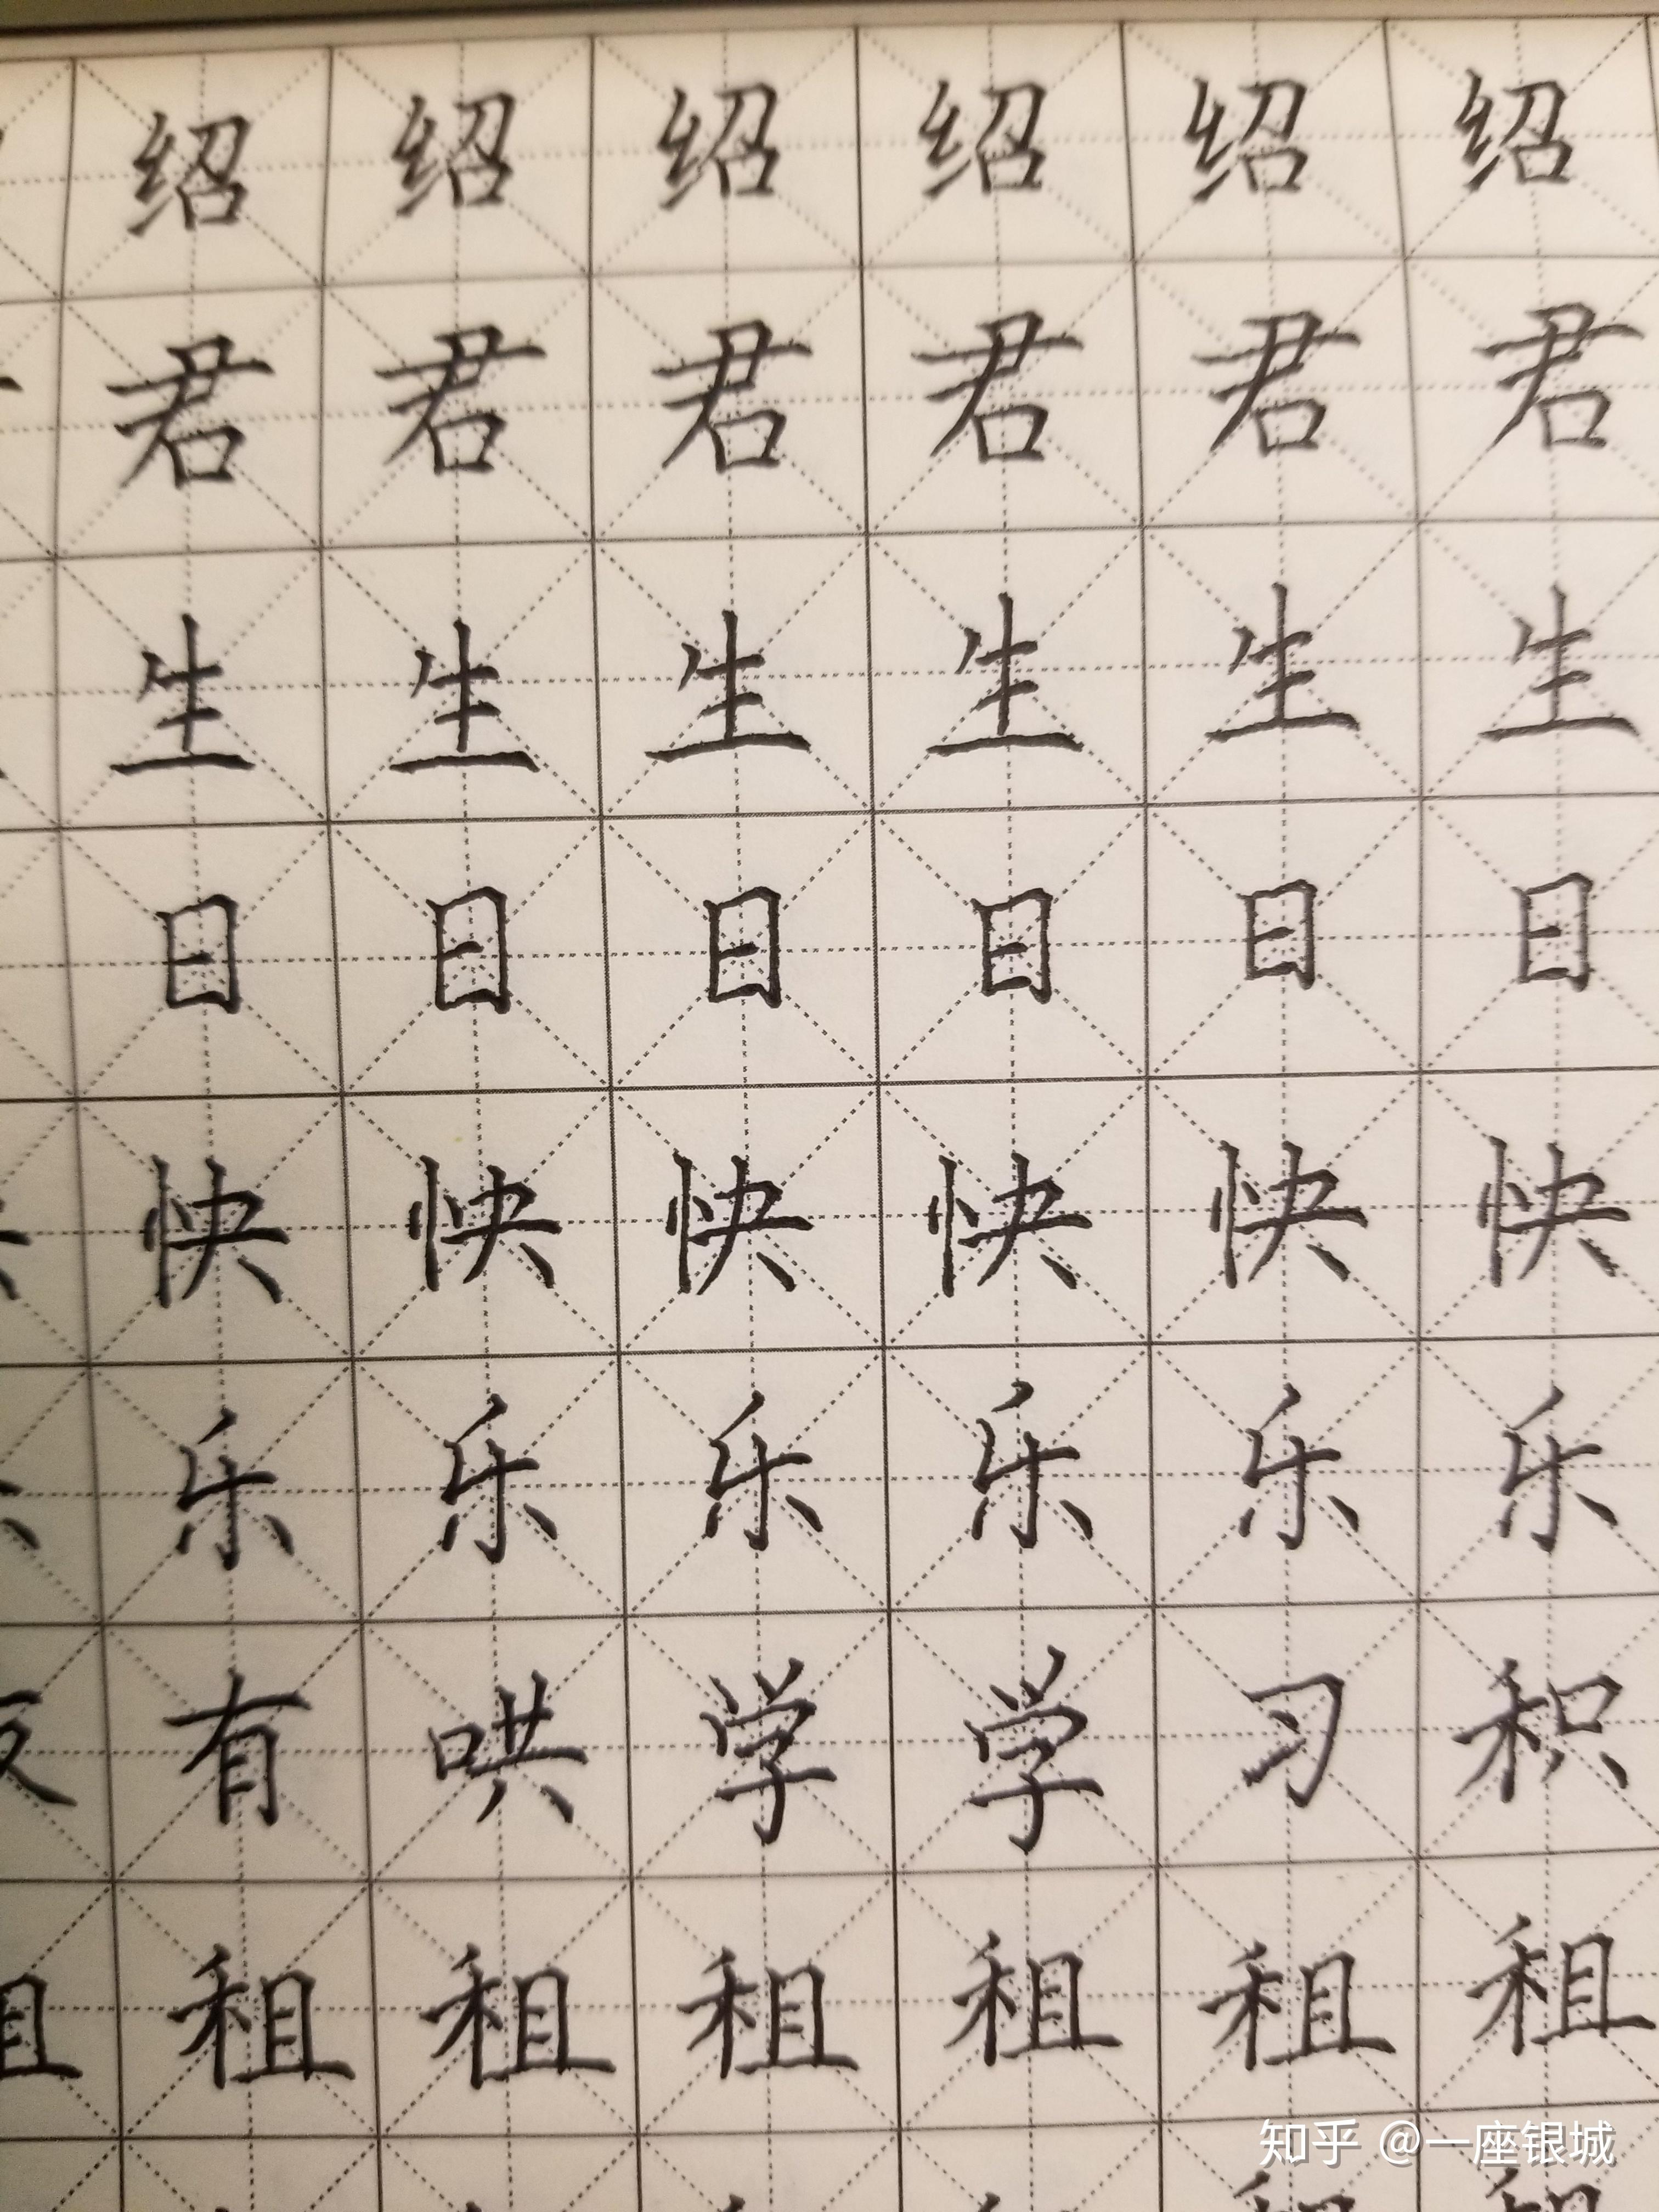 绍绍绍绍绍绍
君君君君君君
生生生生生生
日日日日日日
快快快快快快
乐乐乐乐乐乐
有哄学学习积
租租租租租租租
知乎 @一座银城